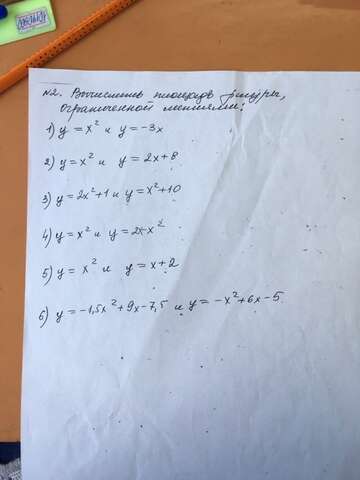 №2. Вычислить площадь фигуры,
ограниченной линиями:
1) y = x² и y = -3x
2) y = x² и y = 2x+8
3) y = 2x²+1 и y = x²+10
4) y = x² и y = 2x-x²
5) y = x² и y = x+2
6) y = -1,5x²+9x-7,5 и y = -x²+6x-5.